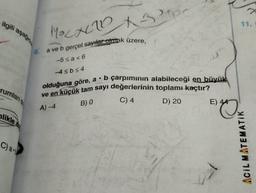 ilgili aşağı
11.
a ve b gerçel sayılar olmak üzere,
-5 ≤ a < 6
-4 ≤ b ≤ 4
olduğuna göre, a • b çarpımının alabileceği en büyük
ve en küçük tam sayı değerlerinin toplamı kaçtır?
A) -4 B) 0 C) 4 D) 20 E) 44
rumları
C)
ACİL MATEMATİK